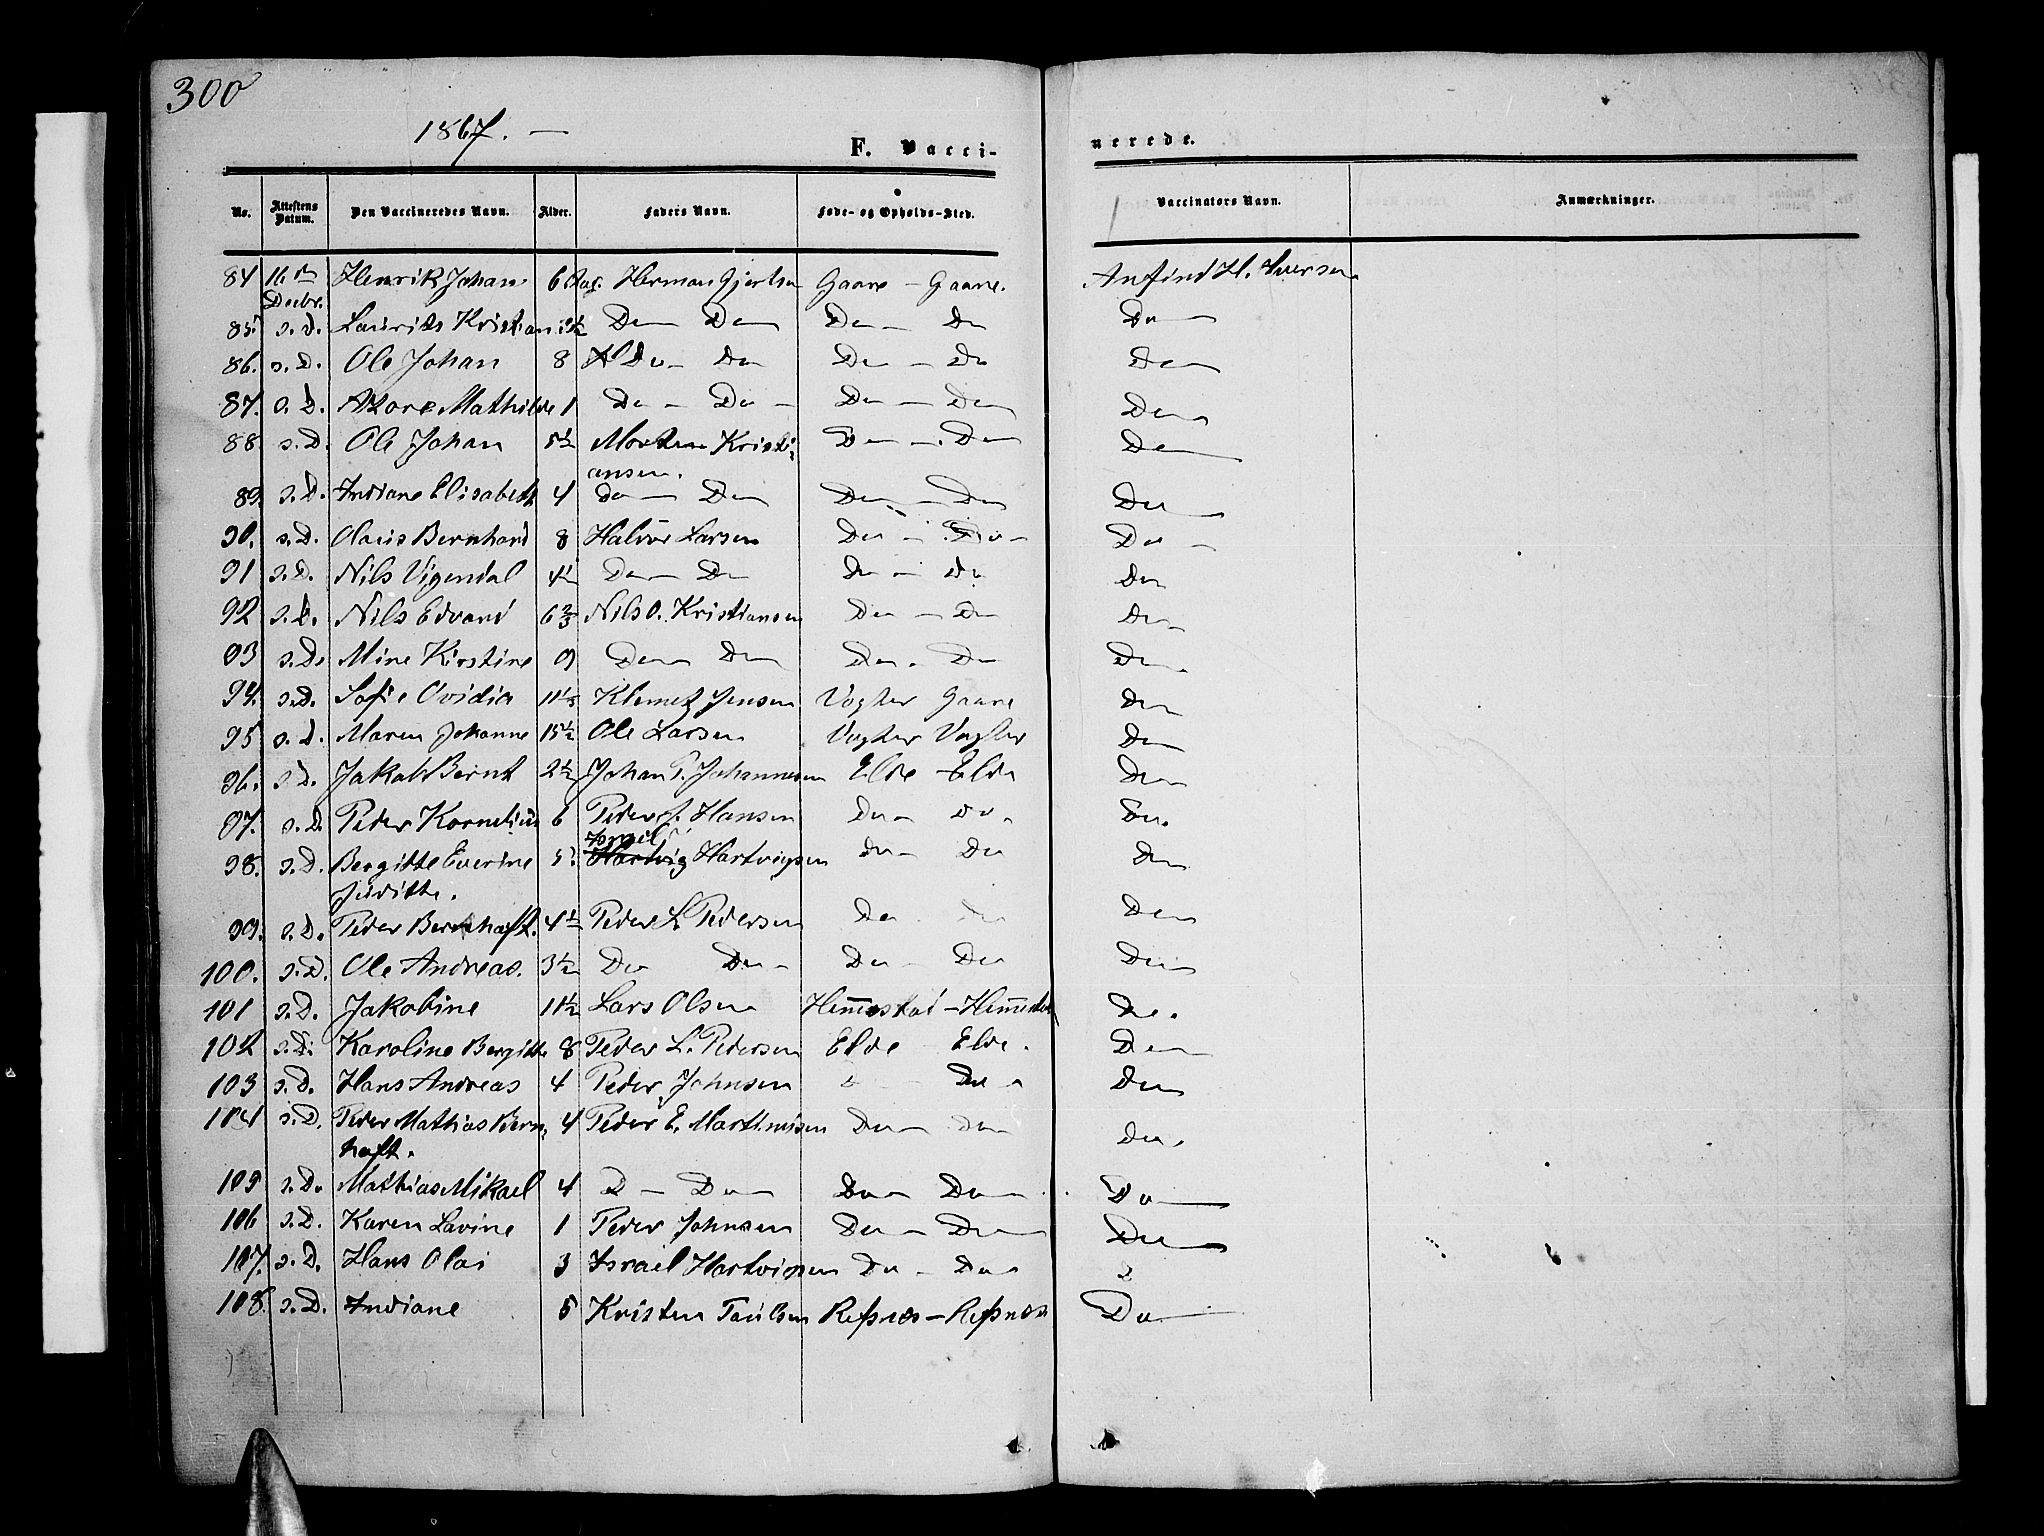 300
1867. —
F. Vacci- nerede.
No. Attestens Datum. Den Vaccineredes Navn. Alder. Faders Navn. Føde- og Opholds-Sted. Vaccinators Navn. Anmærkninger.
84 16de Decbr. Henrik Johan 6 Herman Gjertsen Gaare – Gaare. Anfind H. Iversen
85. s.D. Laurits Kristian Do – Do Do – Do Do
86. s.D. Ole Johan 8 Do – Do Do – Do Do
87. s.D. Mathilde 1 Do – Do – Do – Do Do
88. s.D. Ole Johan 5½ Morten Kristi-
ansen. Do – Do Do
89. s.D. Indiane Elisabeth 4 Do – Do Do – Do Do
90. s.D. Olaus Bernhard 8 Halvor Larsen Do – Do – Do –
91 s.D. Nils Vigendal 4½ Do – Do Do – Do Do
92 s.D. Nils Edvard 6⅔ Nils O. Kristiansen Do – Do Do
93 s.D. Mine Kirstine 9 Do Do Do. Do Do.
94. s.D. Sofie Ovidia Klemet Jensen Vogter Gaare Do
95 s.D. Maren Johanne 15½ Ole Larsen Vogter Vogter Do
96. s.D. Jakob Bernt 2½ Johan P. Johannesen Elde – Elde Do
97. s.D. Peder Kornelius 6 Peder J. Hansen Do – Do. Do.
98. s.D. Bergitte Everine
Juditte. Israel Hartvig Hartvigsen Do – Do Do
99. s.D. Peder Bernhoft. 4½ Peder L. Pedersen Do Do Do
100. s.D. Ole Andreas. 3½ Do Do – Do – Do Do
101 s.D. Jakobine 11½ Lars Olsen Hemmestad – Hemmestad Do.
102 s.D. Karoline Bergitte 8 Peder L. Pedersen Elde Elde. Do
103 s.D. Hans Andreas 4 Peder Johnsen D – Do Do
104 s.D. Peder Mathias Bern-
hoft. 4 Peder E. Martinusen Do – Do Do.
105 s.D. Mathias Mikael 4 D – Do Do – Do Do
106 s.D. Karen Lavine 1 Peder Johnsen Do – Do Do
107. s.D. Hans Olai 3 Israel Hartvigsen Do – Do D
108. s.D. Indiane 5 Kristen Paulsen Refsnes – Refsnes Do